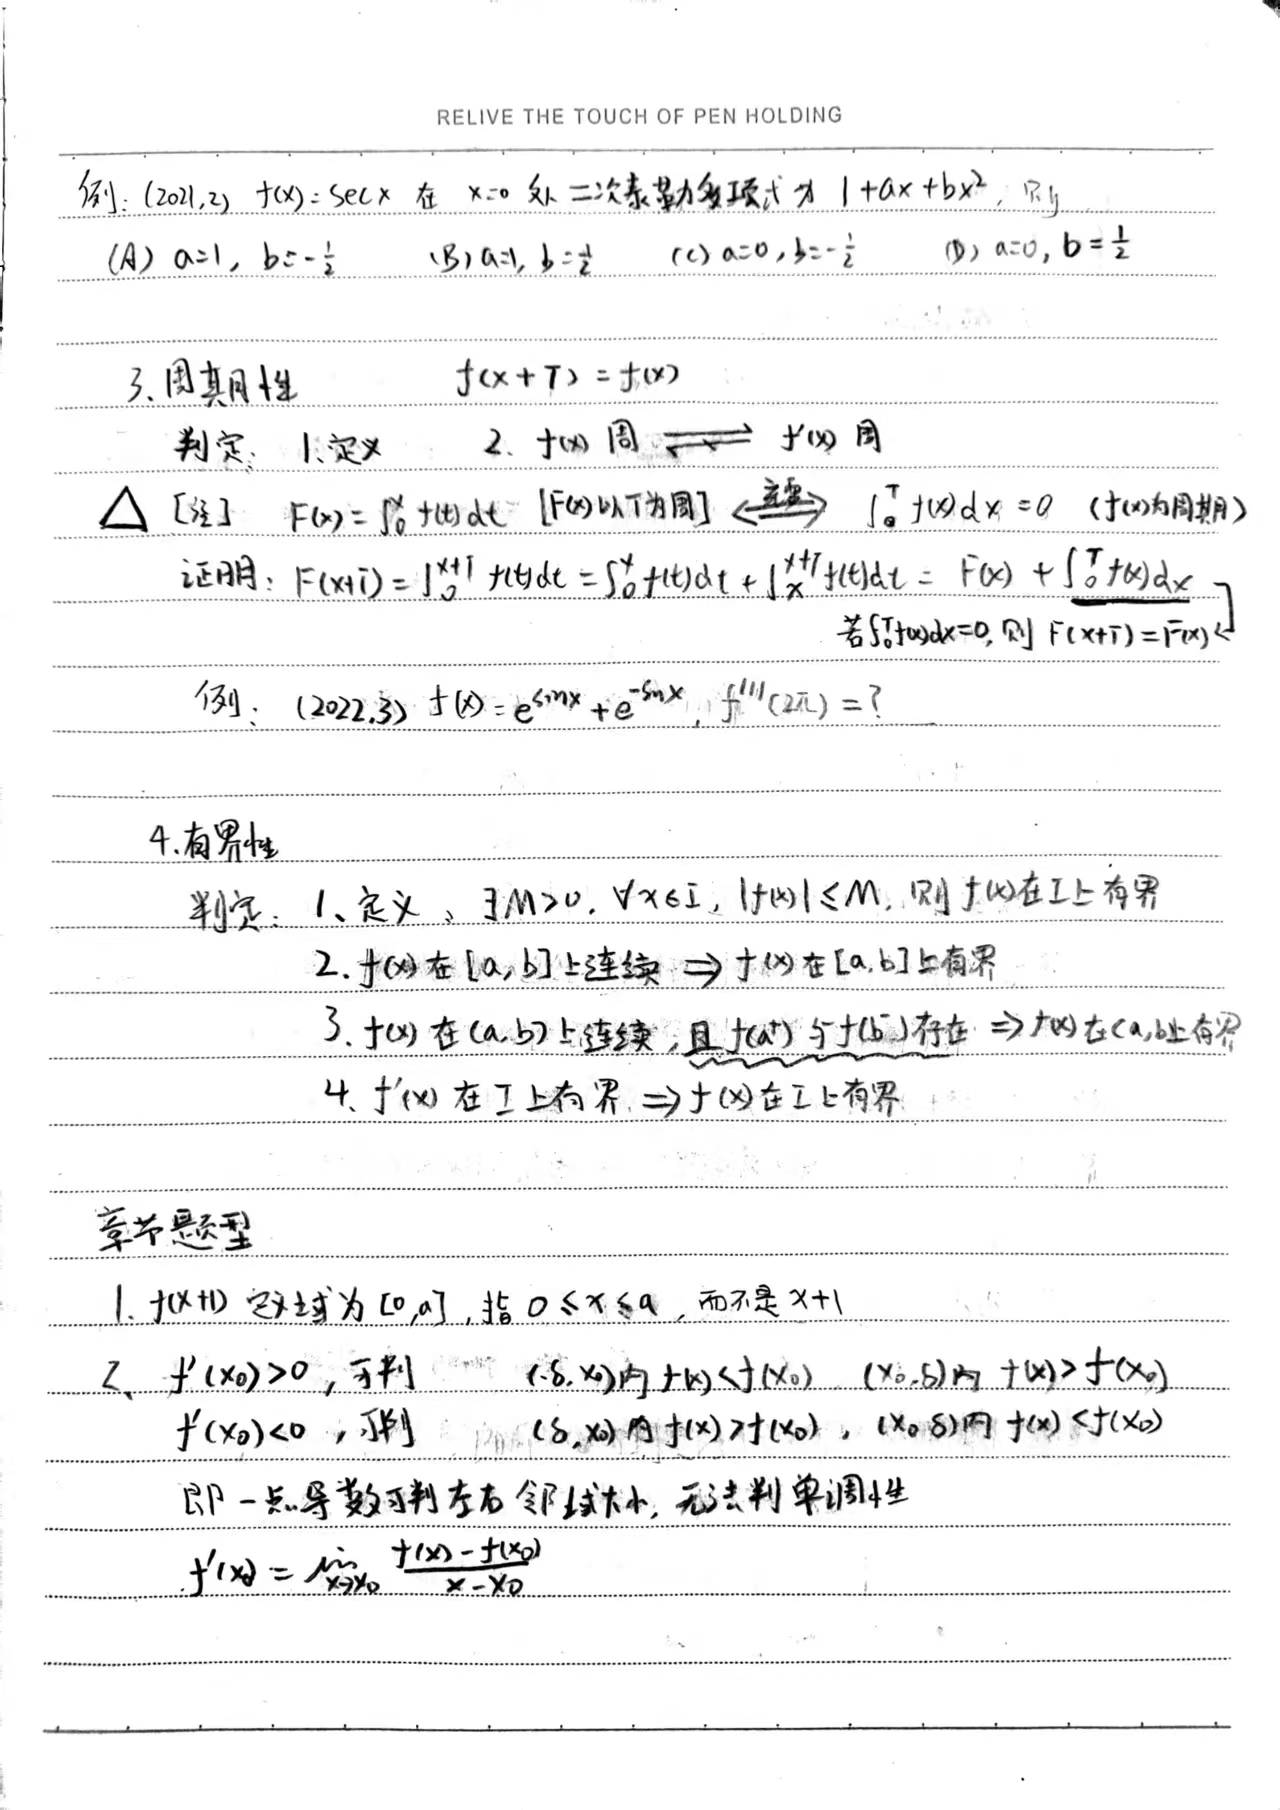 RELIVE THE TOUCH OF PEN HOLDING
例:(2021,2) f(x)=secx 在 x=0 处 二次泰勒多项式为 1+ax+bx², 则
(A) a=1, b=-1/2 (B) a=1, b=1/2 (C) a=0, b=-1/2 (D) a=0, b=1/2
3、周期性 f(x+T)=f(x)
判定: 1、定义 2. f(x) 周 ⇌ f'(x) 周
△ [注] F(x)=∫₀ˣ f(t)dt [F(x)以T为周] ⟺(充要) ∫₀ᵀ f(x)dx=0 (f(x)为周期)
证明: F(x+T)=∫₀ˣ⁺ᵀ f(t)dt=∫₀ˣ f(t)dt+∫ₓˣ⁺ᵀ f(t)dt= F(x)+∫₀ᵀ f(x)dx
若∫₀ᵀf(x)dx=0, 则 F(x+T)=F(x)
例: (2022.3) f(x)=e^sinx+e^-sinx, f'''(2π)=?
4.有界性
判定: 1、定义、∃M>0, ∀x∈I, |f(x)|≤M, 则 f(x)在I上有界
2. f(x)在[a,b]上连续 ⇒ f(x)在[a,b]上有界
3. f(x)在(a,b)上连续,且f(a⁺)与f(b⁻)存在 ⇒ f(x)在(a,b)上有界
4、f'(x)在I上有界 ⇒ f(x)在I上有界
章节题型
1. f(x+1) 定义域为[0,a], 指 0≤x≤a, 而不是 x+1
2、f'(x₀)>0, 可判 (-δ,x₀)内 f(x)<f(x₀) (x₀,δ)内 f(x)>f(x₀)
f'(x₀)<0, 可判 (δ,x₀)内 f(x)>f(x₀), (x₀,δ)内 f(x)<f(x₀)
即一点导数可判左右邻域大小, 无法判单调性
f'(x₀)= lim x→x₀ (f(x)-f(x₀))/(x-x₀)